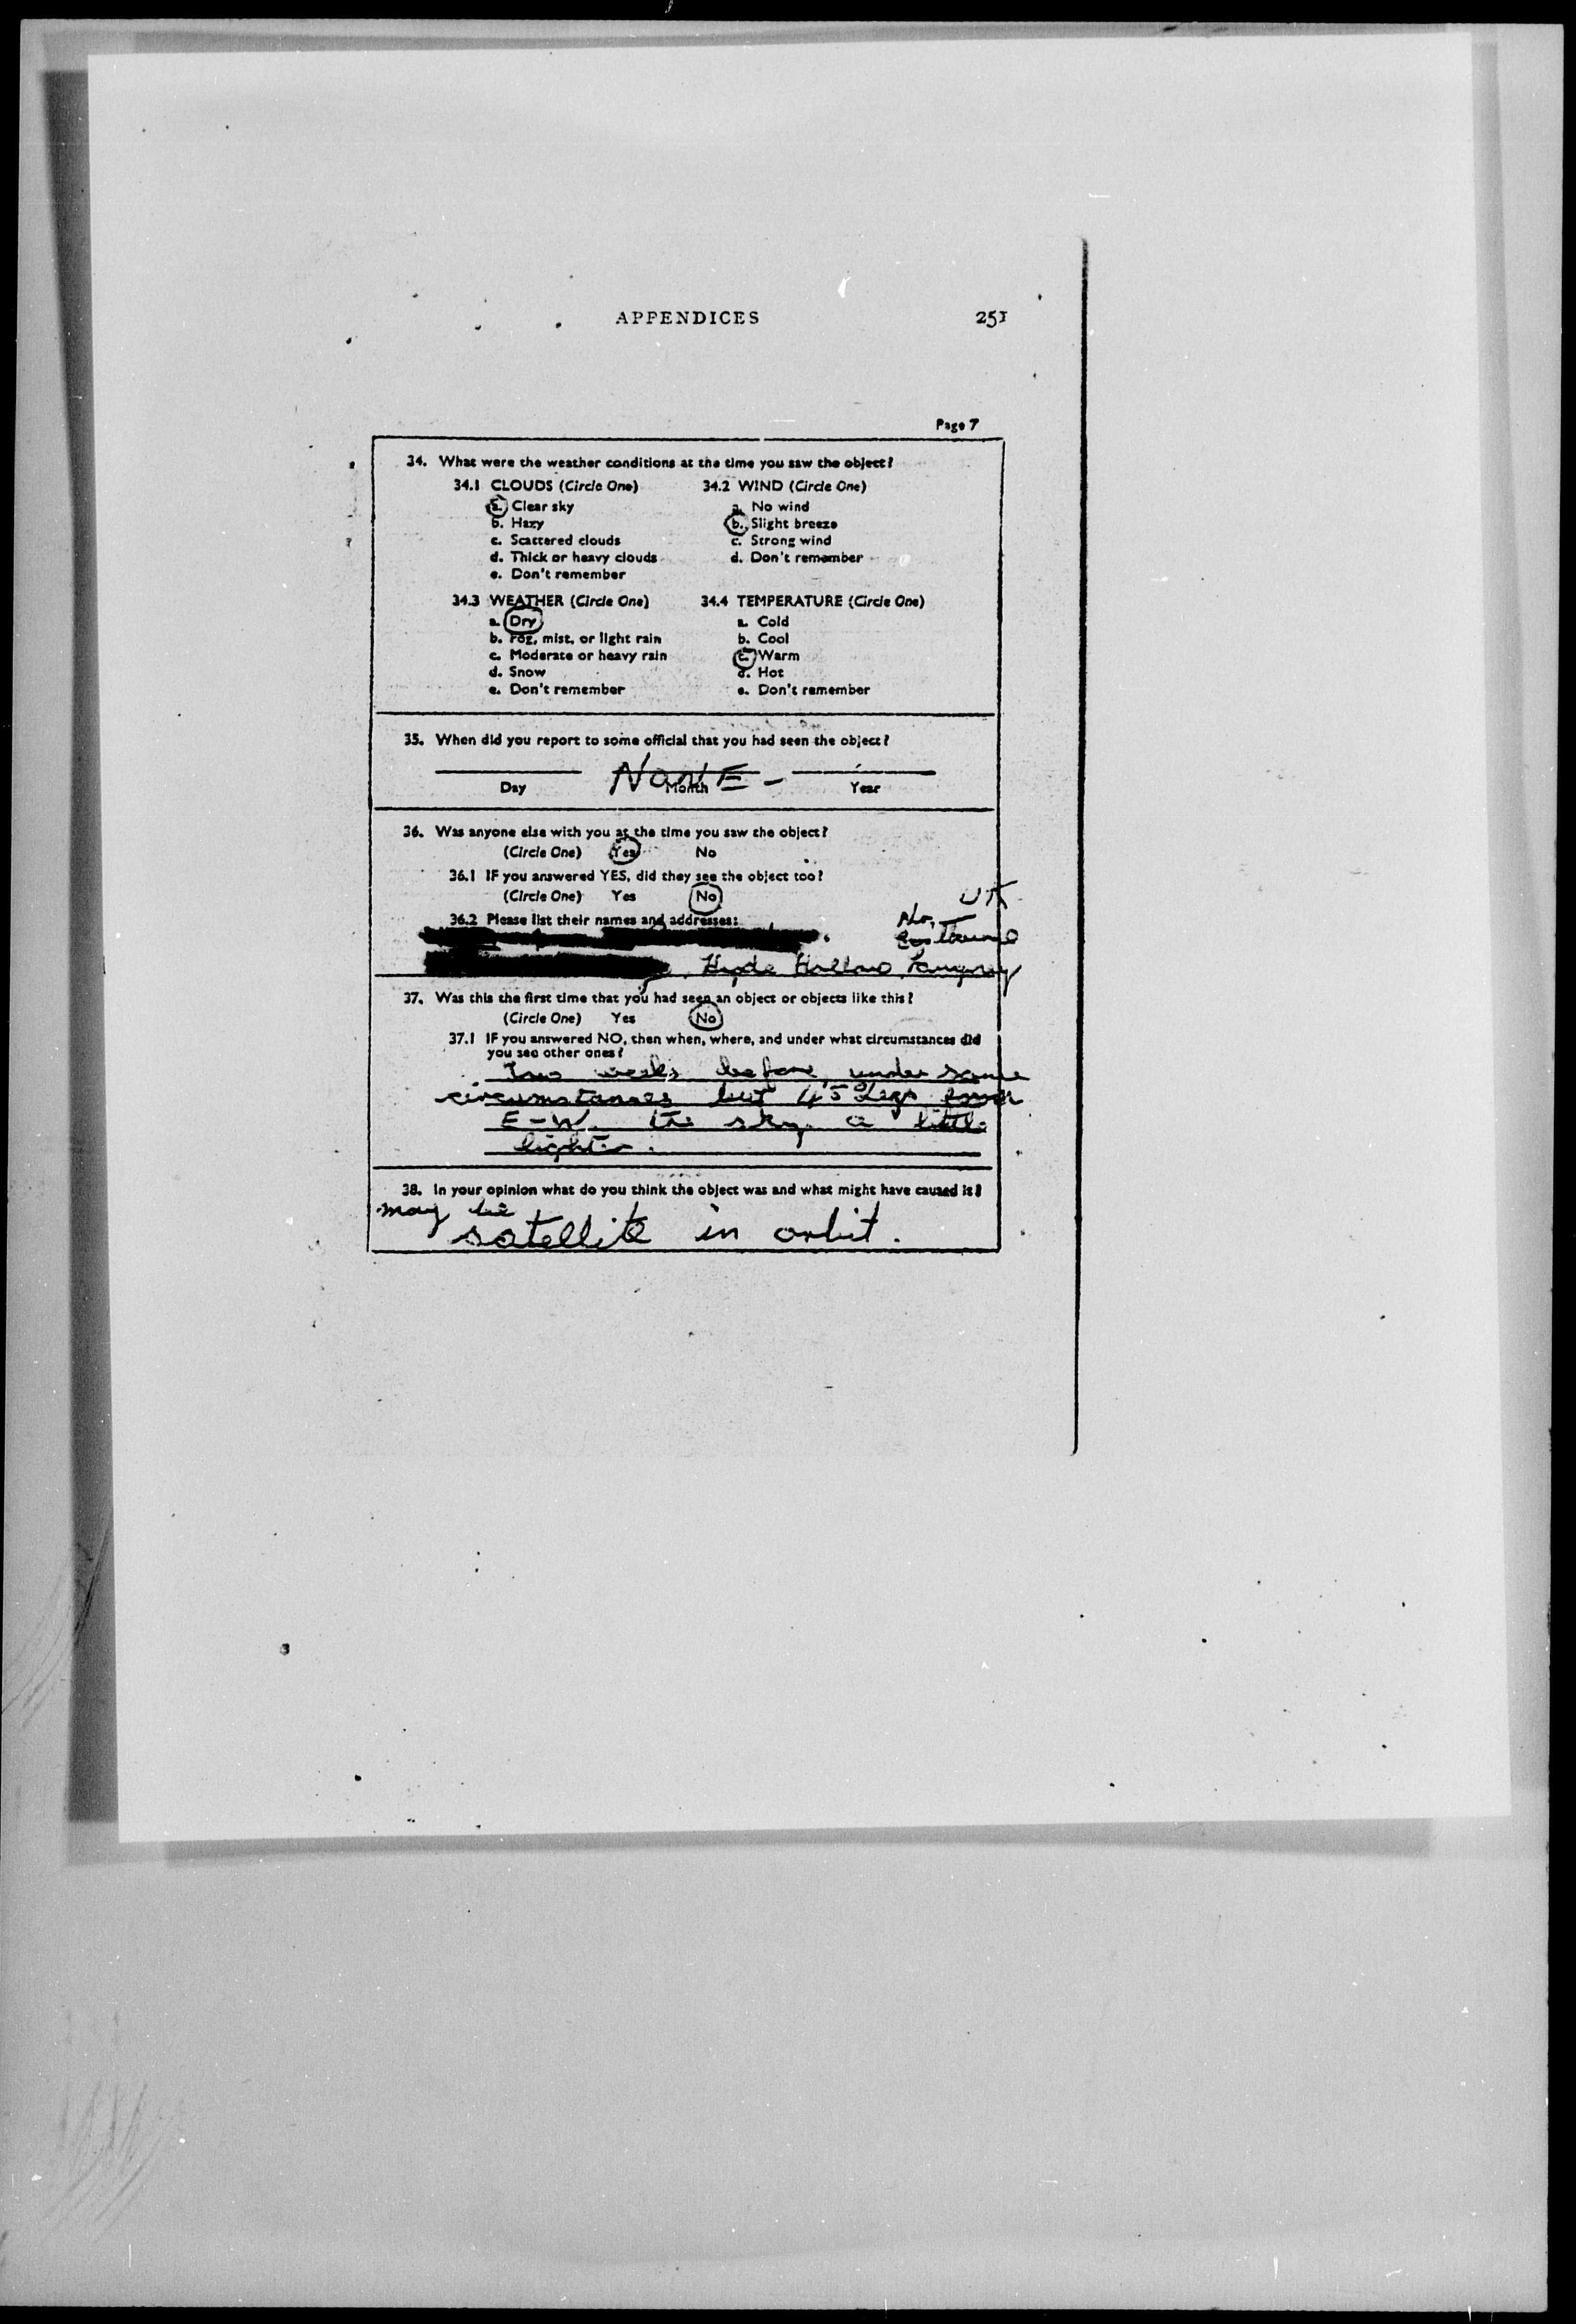 APPENDICES 251
Page 7
34. What were the weather conditions at the time you saw the object?
34.1 CLOUDS (Circle One) 34.2 WIND (Circle One)
a. Clear sky a. No wind
b. Hazy b. Slight breeze
c. Scattered clouds c. Strong wind
d. Thick or heavy clouds d. Don't remember
e. Don't remember
34.3 WEATHER (Circle One) 34.4 TEMPERATURE (Circle One)
a. Dry a. Cold
b. Fog, mist, or light rain b. Cool
c. Moderate or heavy rain c. Warm
d. Snow d. Hot
e. Don't remember e. Don't remember
35. When did you report to some official that you had seen the object?
NONE -
Day Month Year
36. Was anyone else with you at the time you saw the object?
(Circle One) Yes No
36.1 IF you answered YES, did they see the object too?
(Circle One) Yes No
UK
36.2 Please list their names and addresses:
Nr.
Hyde Hollow
37. Was this the first time that you had seen an object or objects like this?
(Circle One) Yes No
37.1 IF you answered NO, then when, where, and under what circumstances did
you see other ones?
Two weeks before, under same
circumstances but 45° degs from
E-W. the sky a little
lighter.
38. In your opinion what do you think the object was and what might have caused it?
may be
satellite in orbit.